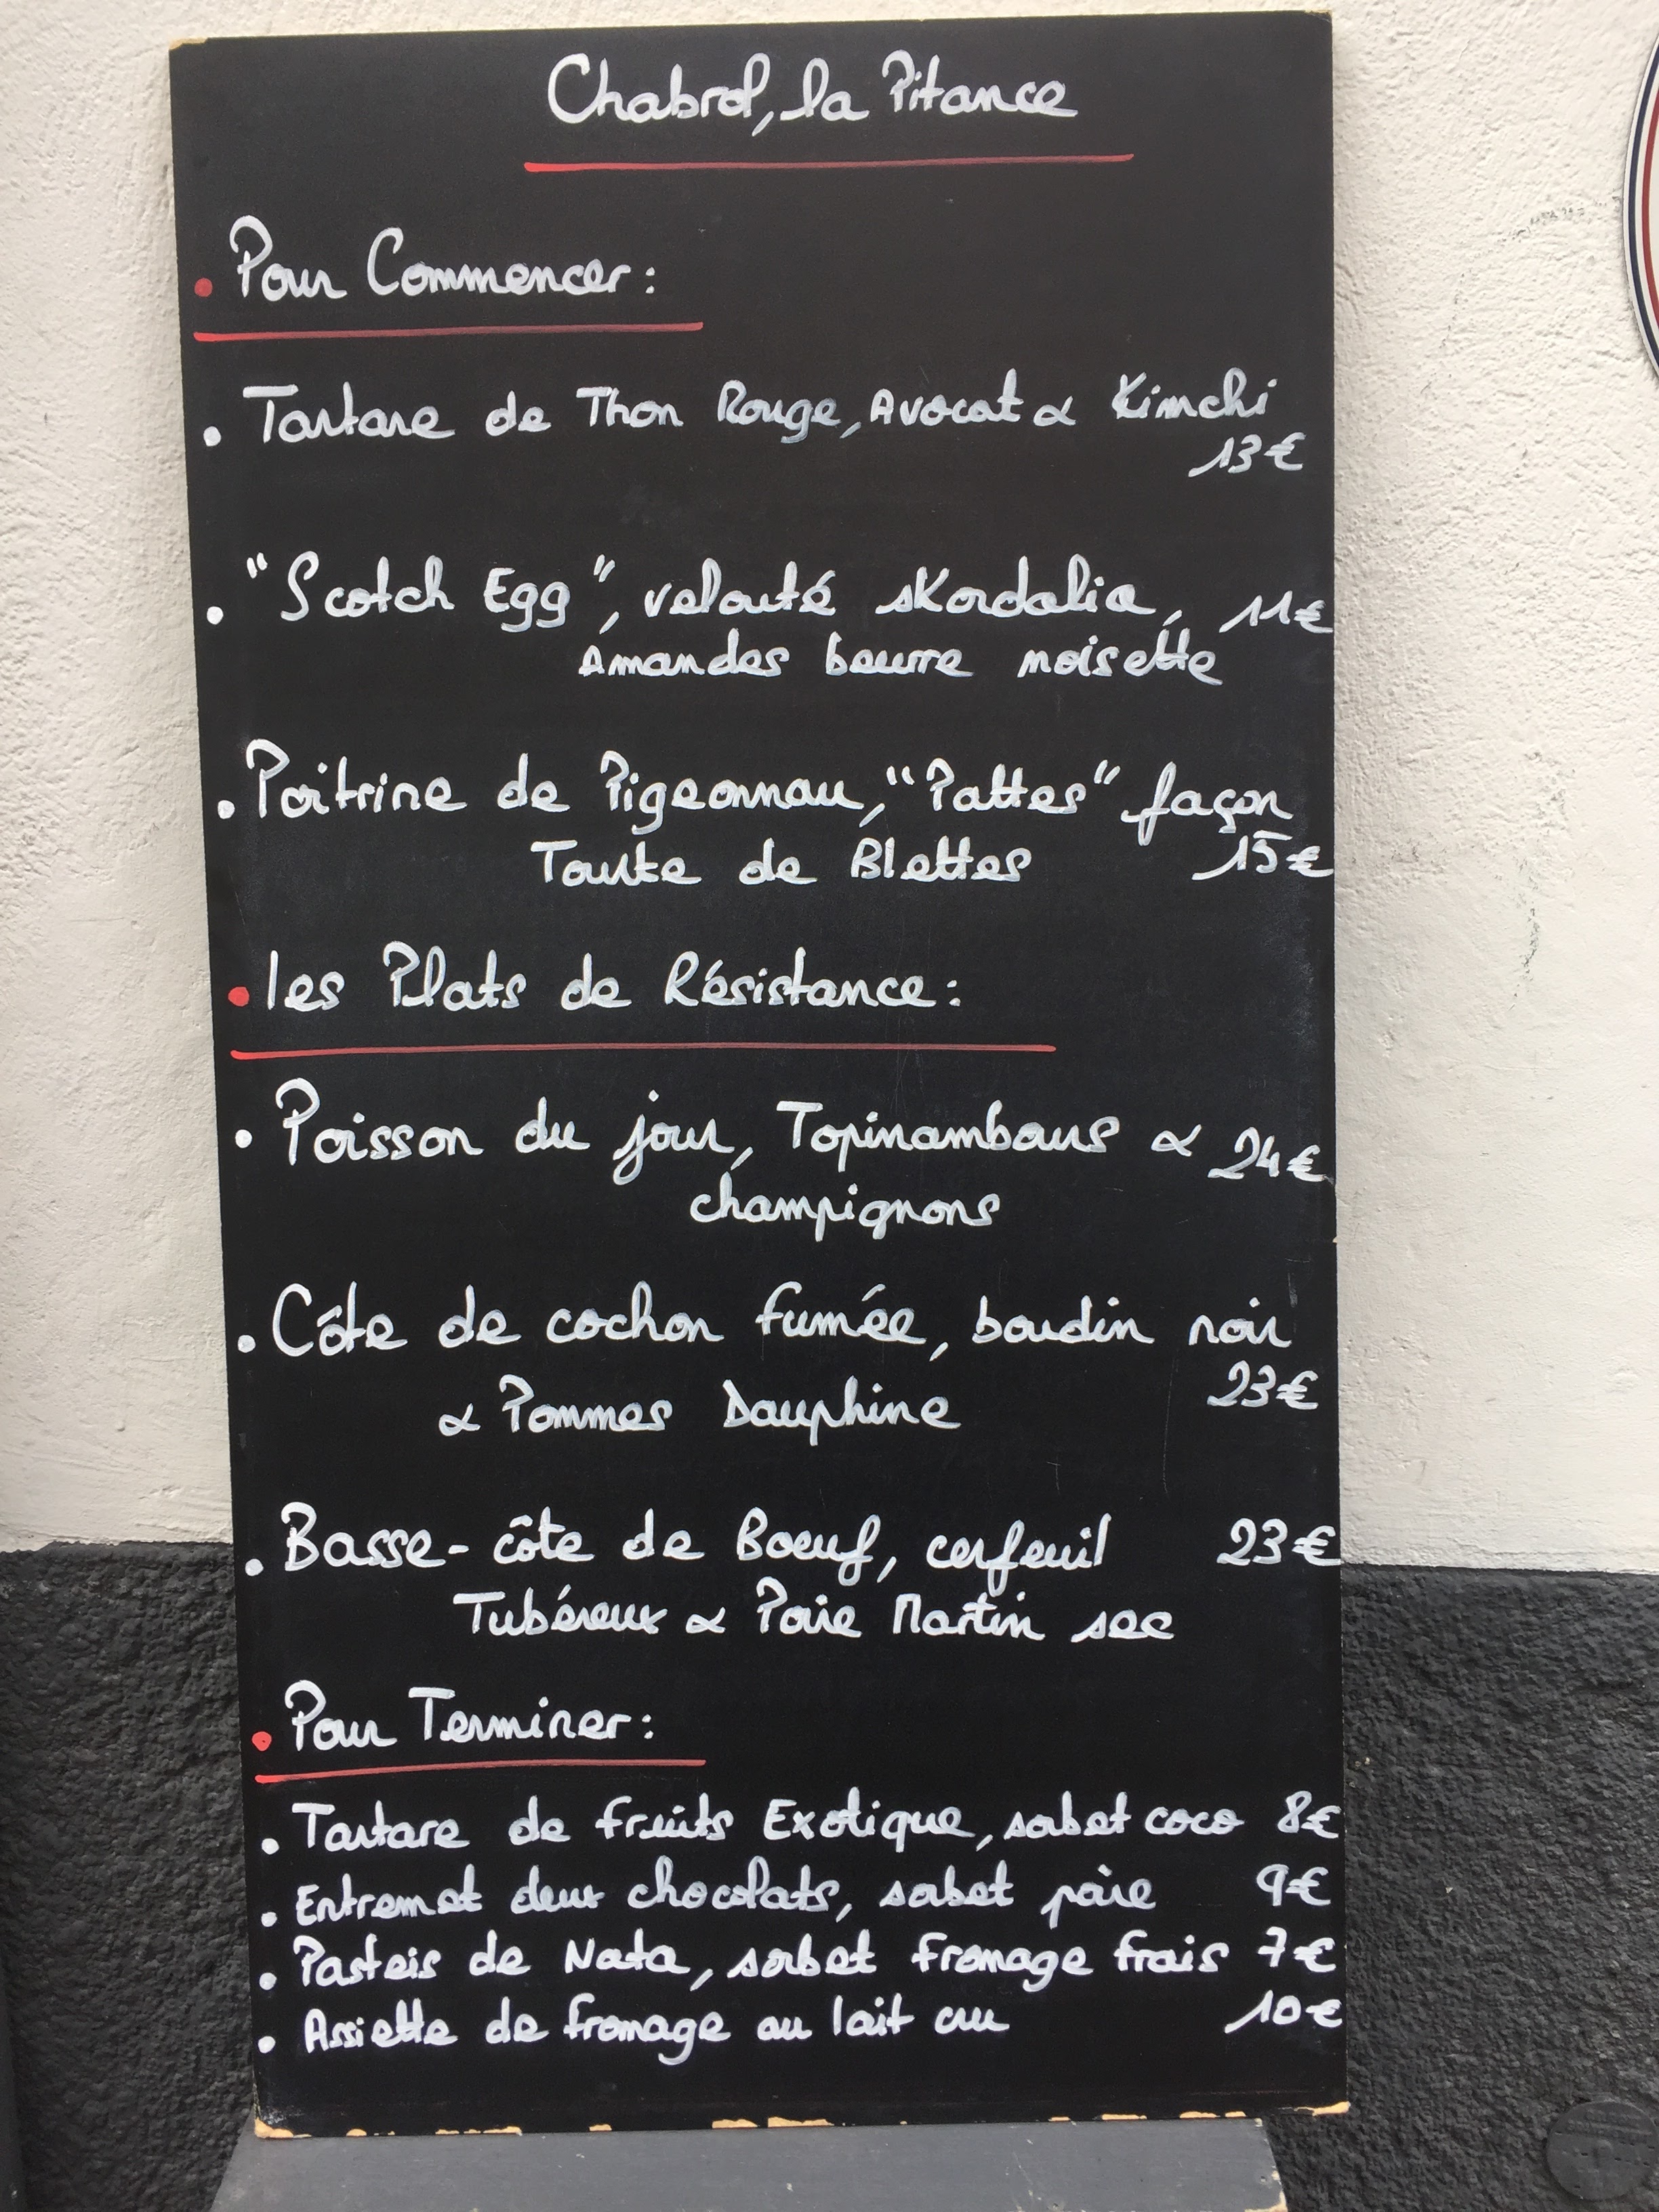 Chabrol, la Pitance
• Pour Commencer :
• Tartare de Thon Rouge, Avocat & Kimchi
13€
• "Scotch Egg", velouté skordalia, 11€
Amandes beurre noisette
• Poitrine de Pigeonnau, "Pattes" façon
Tourte de Blettes 15€
• les Plats de Résistance :
• Poisson du jour, Topinambours & 24€
champignons
• Côte de cochon fumée, boudin noir
23€
& Pommes Dauphine
• Basse-côte de Boeuf, cerfeuil 23€
Tubéreux & Poire Martin sec
• Pour Terminer :
• Tartare de fruits Exotique, sorbet coco 8€
• Entremet deux chocolats, sorbet poire 9€
• Pasteis de Nata, sorbet fromage frais 7€
• Assiette de fromage au lait cru 10€